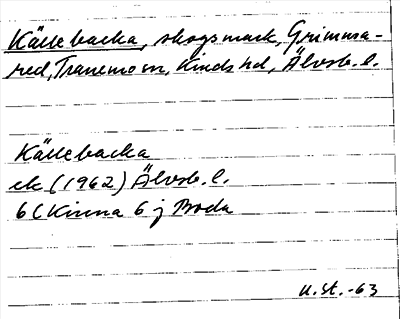 Källebacka, skogsmark, Grimma-
red, Tranemo sn, Kinds hd, Älvsb. l.
Källebacka
ek (1962) Älvsb. l.
6C Kinna 6 j Boda
U.St. -63